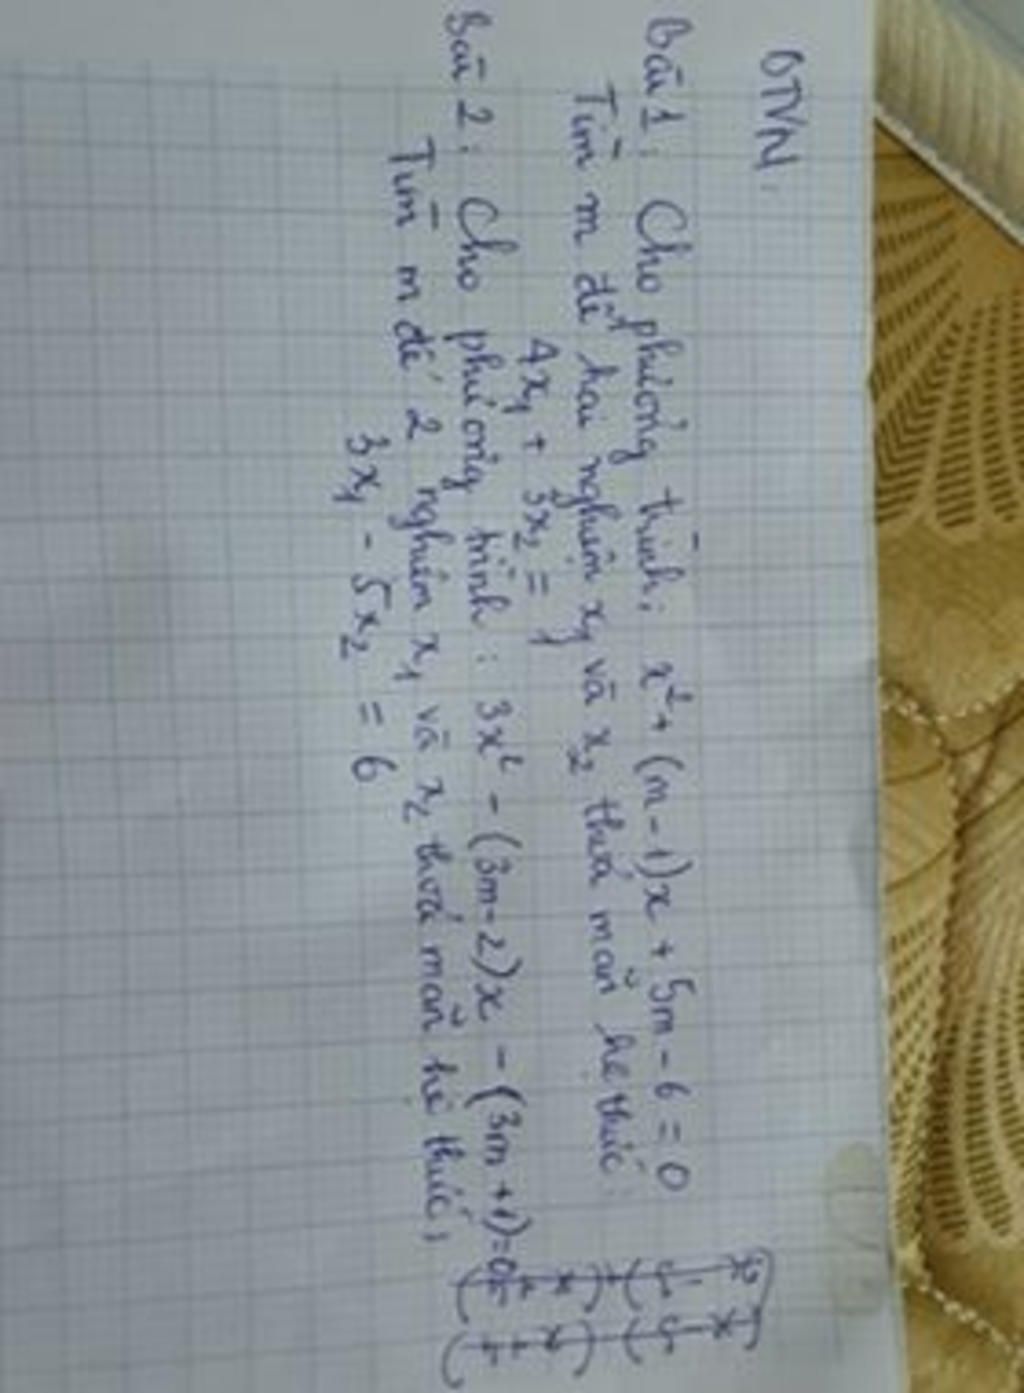 BTVN.
Bài 1: Cho phương trình: x² + (m - 1)x + 5m - 6 = 0
Tìm m để hai nghiệm x₁ và x₂ thoả mãn hệ thức:
4x₁ + 3x₂ = 1
Bài 2: Cho phương trình: 3x² - (3m-2)x - (3m+1)=0
Tìm m để 2 nghiệm x₁ và x₂ thoả mãn hệ thức:
3x₁ - 5x₂ = 6